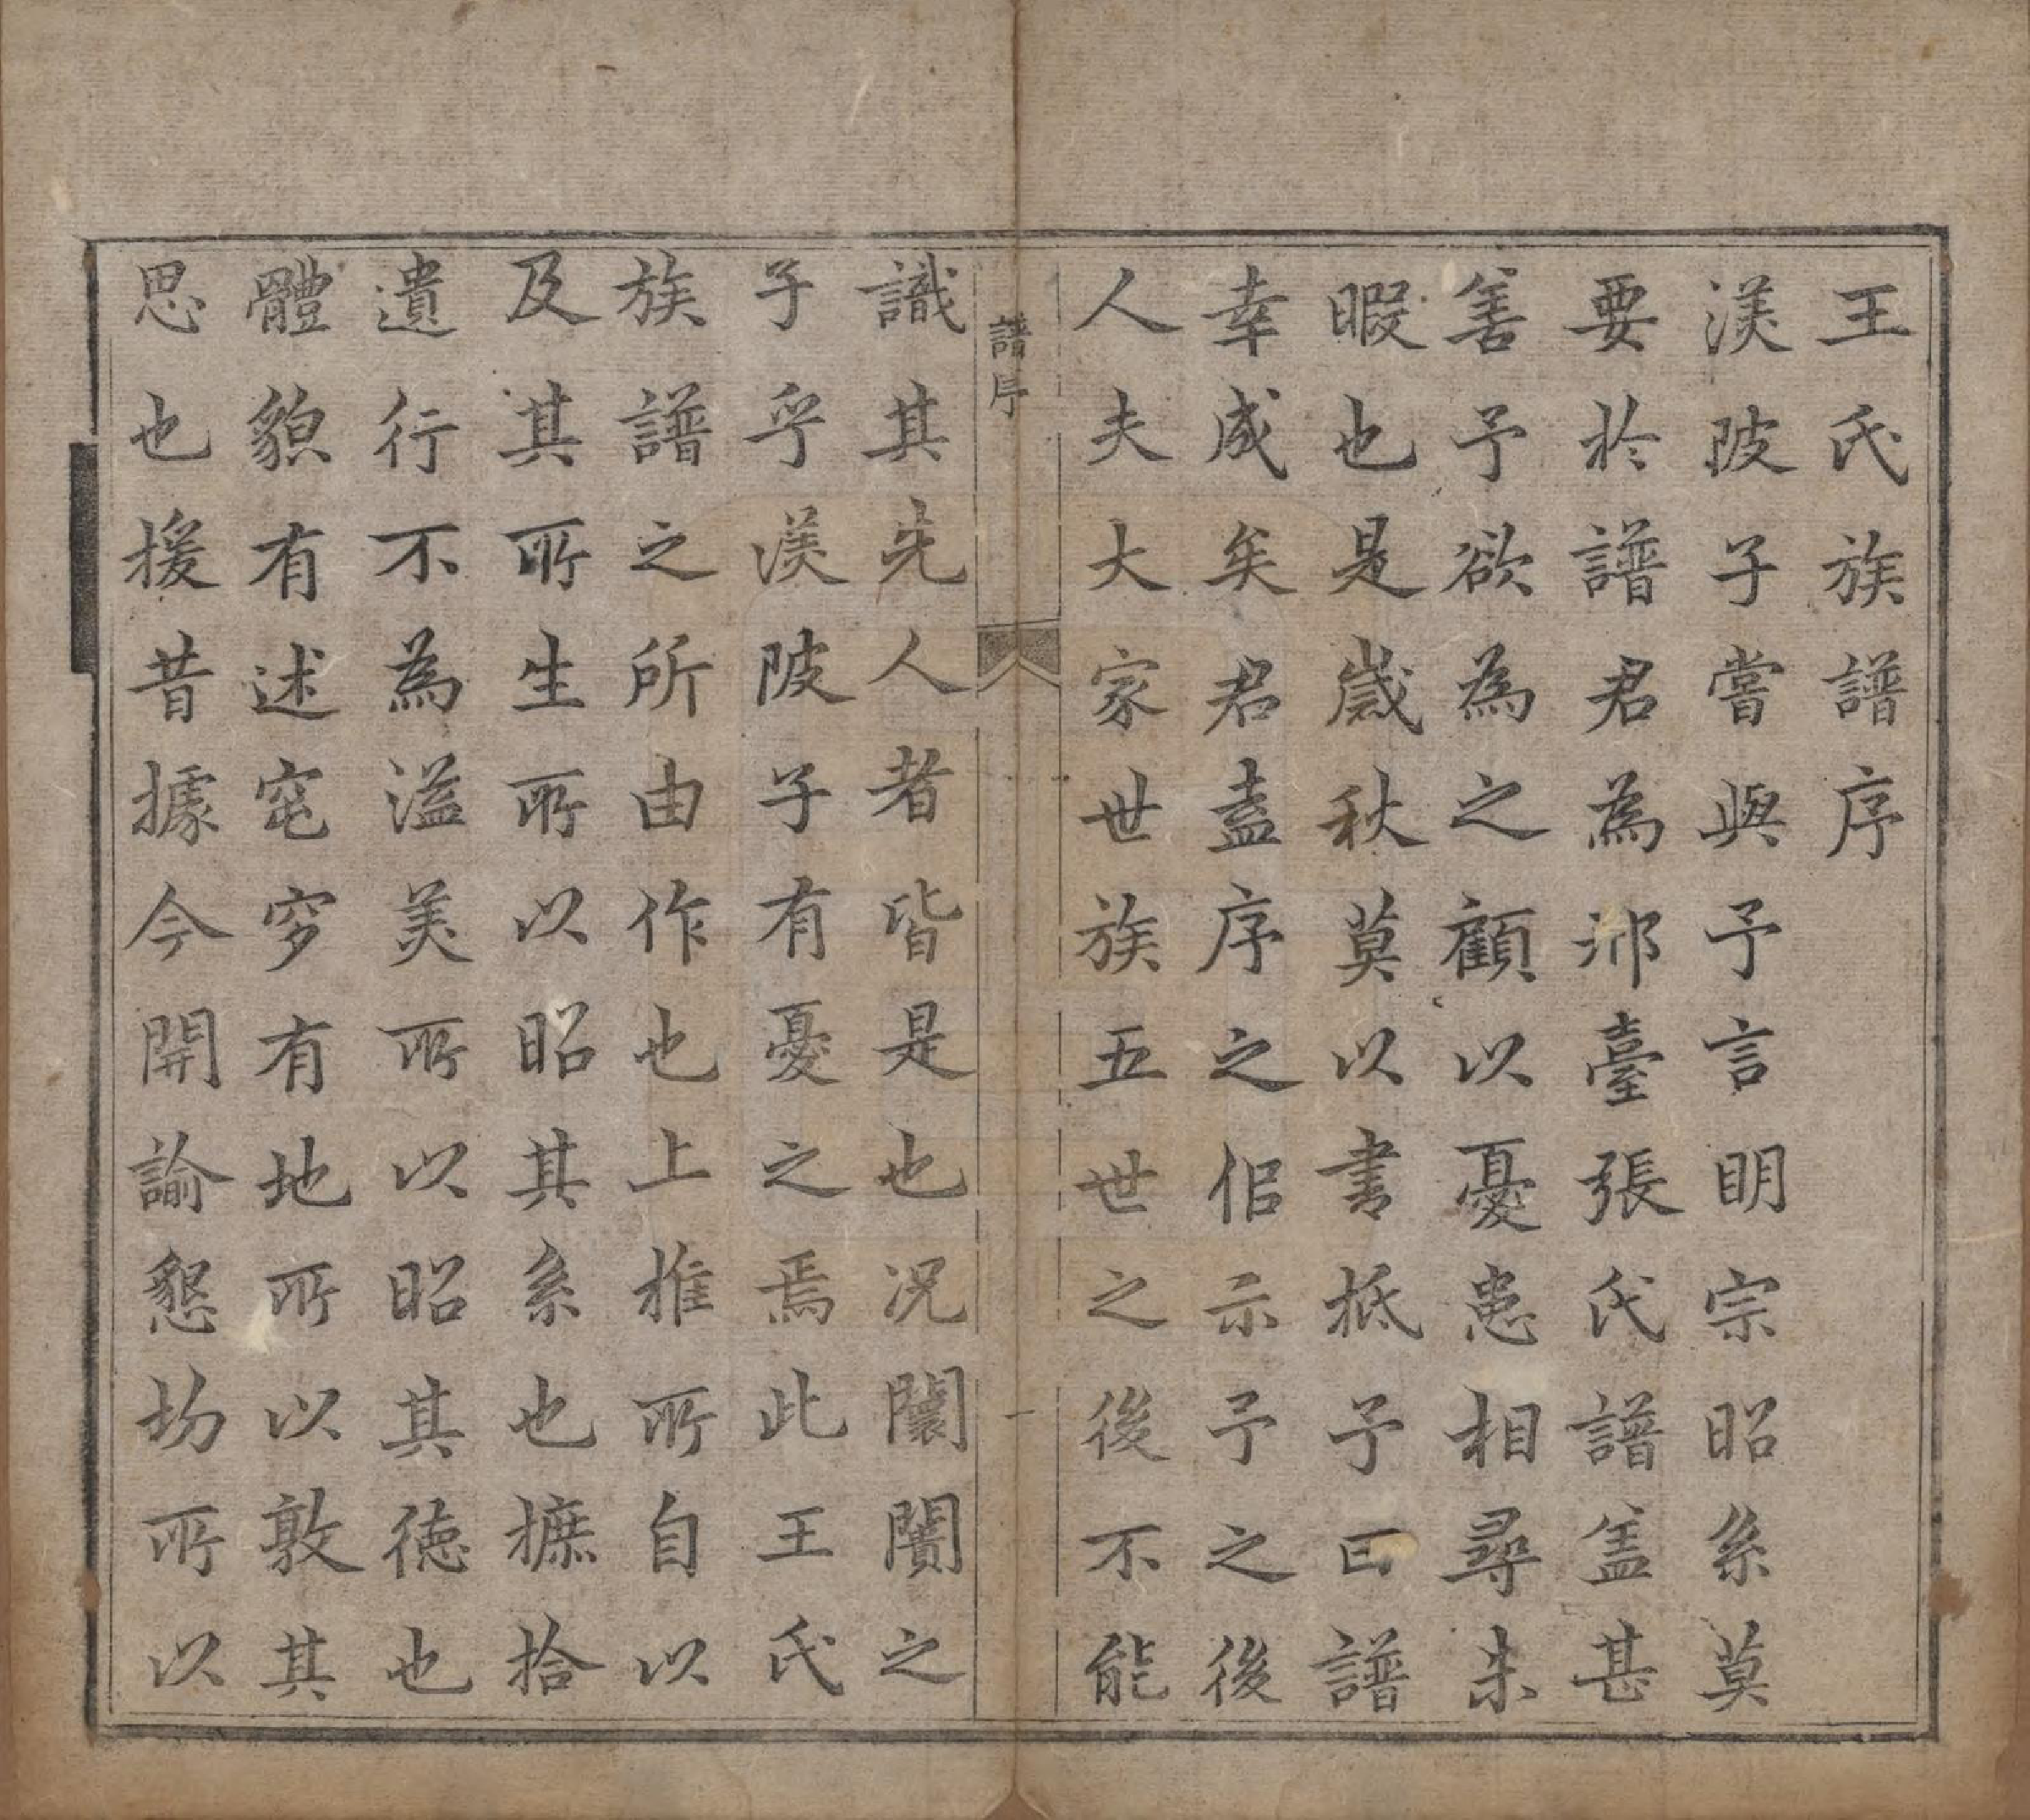 王氏族譜序
渼陂子嘗與予言明宗昭系莫
要於譜君為邢臺張氏譜盖甚
善予欲為之顧以憂患相尋未
暇也是歲秋莫以書抵予曰譜
幸成矣君盍序之侣示予之後
人夫大家世族五世之後不能
譜序
一
識其先人者皆是也况闤闠之
子乎渼陂子有憂之焉此王氏
族譜之所由作也上推所自以
及其所生所以昭其系也摭拾
遺行不為溢美所以昭其徳也
體貌有述窀穸有地所以敦其
思也援昔據今開諭懇切所以